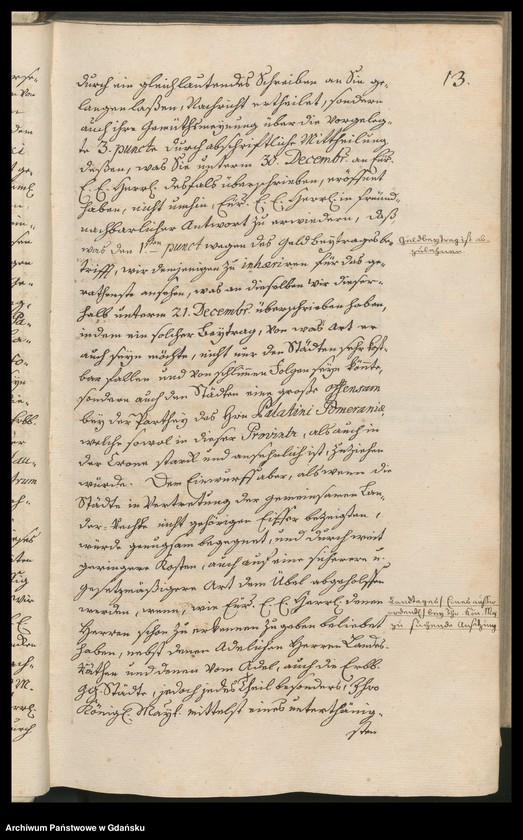 13.
durch ein gleichlautendes Schreiben an Sie ge-
langen laßen, Nachricht ertheilet, sondern
auch ihre Gemüthsmeynung über die vorgeleg-
te 3. puncte durch abschriftliche Mittheilung
deßen, was Sie unterm 30. Decembr. an Eür.
E. E. Herrl. desfals überschrieben, eröffnet
haben, nicht umhin, Eür. E. E. Herrl. in freünd-
nachbarlicher Antwort zu erwiedern, daß
was den 1sten punct wegen des Geldbeytrages be-
trifft, wir demjenigen zu inhæriren für das ge-
rathenste ansehen, was an dieselben wir dieser-
halb unterm 21. Decembr. überschrieben haben,
indem ein solcher Beytrag, von was Art er
auch seyn möchte, nicht nur den Städten sehr kost-
bar fallen und von schlimen Folgen seyn könte,
sondern auch den Städten eine große offensam
bey der Parthey des Hrn Palatini Pomeraniæ
welche sowol in dieser Provintz, als auch in
der Crone starck und ansehnlich ist, zuziehen
würde. Dem Einwurff aber, als wenn die
Städte in Vertretung der gemeinsamen Lan-
des-Rechte nicht gehörigen Eiffer bezeigten,
würde genugsam begegnet, und durch weit
geringere Kosten, auch auf eine sicherere u.
gesetzmäßigere Art dem Übel abgeholffen
werden, wenn, wie Eür. E. E. Herrl. denen
Herren schon zu erkennen zu geben beliebet
haben, nebst denen Adelichen Herren Landes-
Räthen und denen vom Adel, auch die Erbb.
gg. Städte, jedoch jedes Theil besonders, Ihro
Königl. Mayt. mittelst eines unterthänig-
sten
Geldbeytrag ist ab-
zulehnen
Landtages/ Eines ausser-
ordentl./ bey Ihr. Kön. My
zu suchende Ansetzung
Archiwum Państwowe w Gdańsku